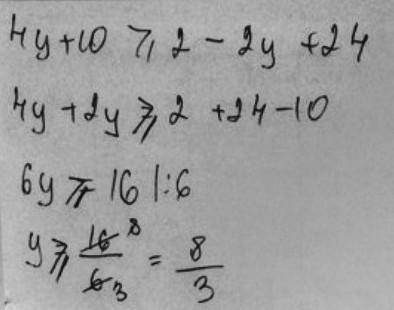 4y+10 ⩾ 2 - 2y +24
4y + 2y ⩾ 2 +24-10
6y ⩾ 16 |:6
y ⩾ 16 8 / 6 3 = 8/3